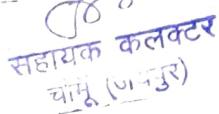 सहायक कलक्टर
चौमू (जयपुर)